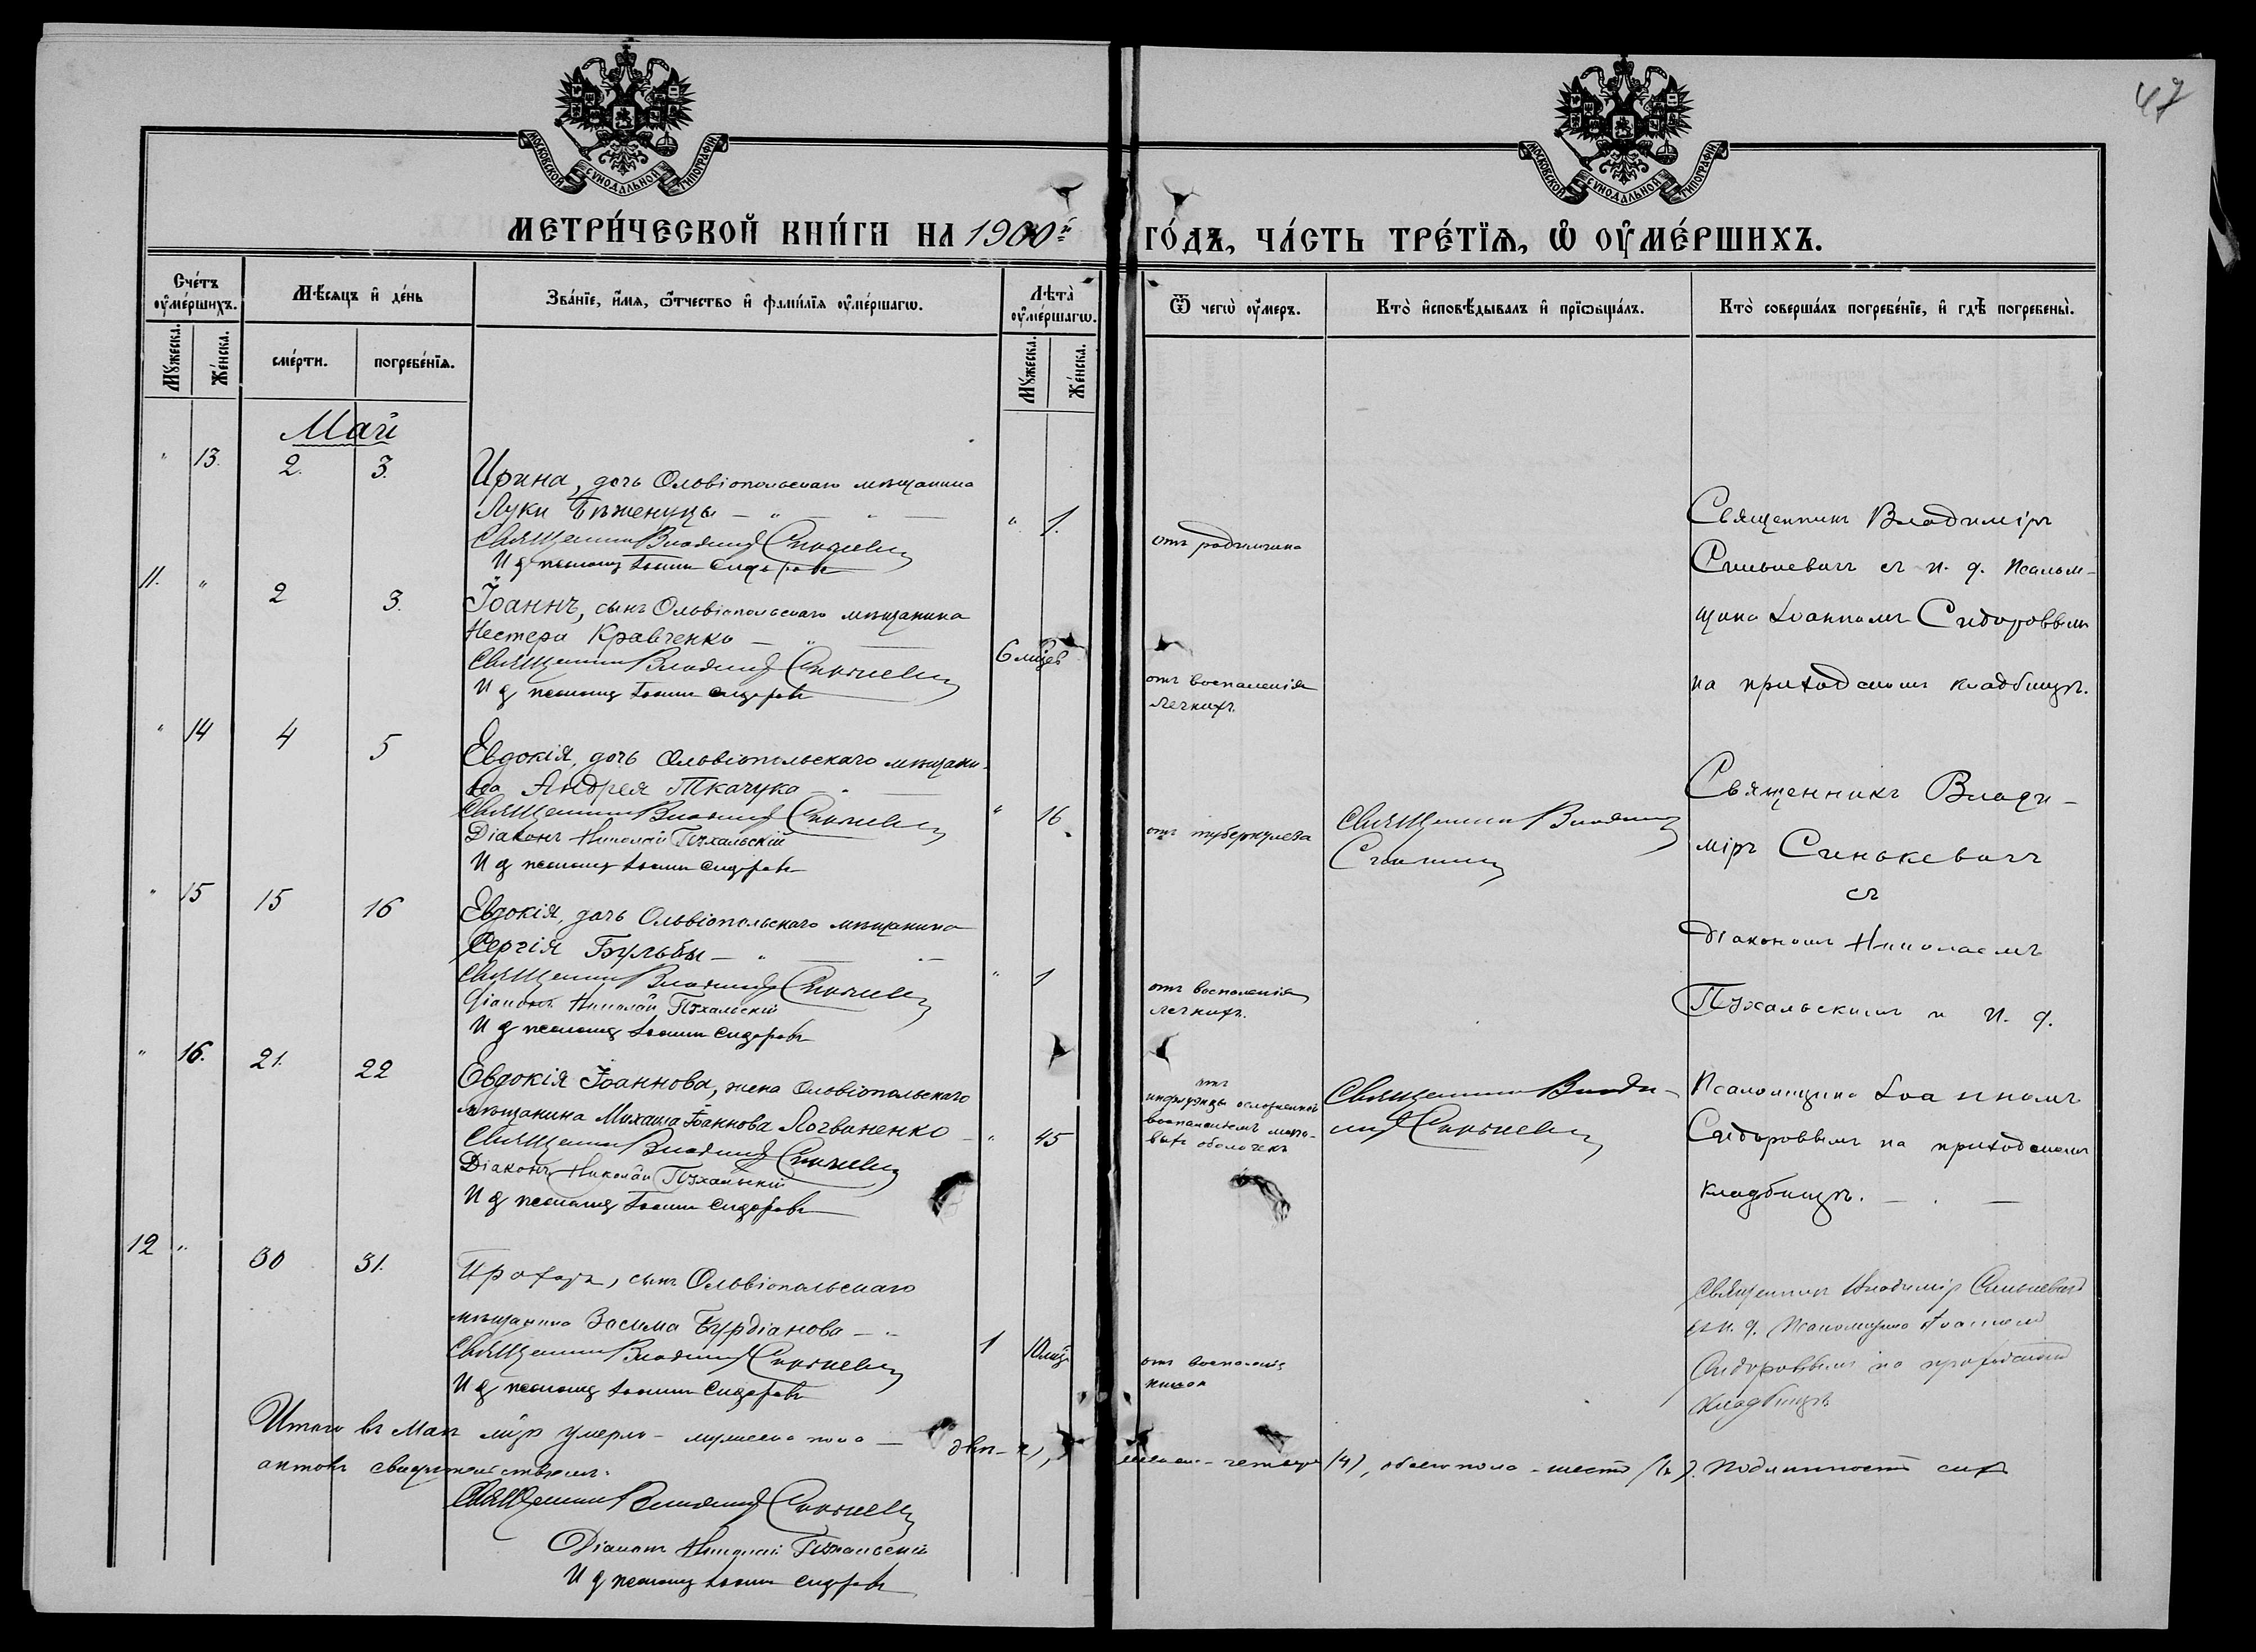 47
МОСКОВСКОЙ СУНОДАЛЬНОЙ ТИПОГРАФІИ
МОСКОВСКОЙ СУНОДАЛЬНОЙ ТИПОГРАФІИ
МЕТРИ́ЧЕСКОЙ КНИ́ГИ НА 1900й ГО́ДЪ, ЧА́СТЬ ТРЕ́ТІѦ, Ѡ҆ ОУ҆МЕ́РШИХЪ.
Сче́тъ оу҆ме́ршихъ.
Мѣ́сяцъ и҆ де́нь
Зва́нїе, и҆́мя, ѻ҆́тчество и҆ фамі́лїя оу҆ме́ршагѡ.
Лѣта̀ оу҆ме́ршагѡ.
Ѿ чегѡ̀ оу҆́меръ.
Кто̀ и҆сповѣ́дывалъ и҆ прїѡбща́лъ.
Кто̀ соверша́лъ погребе́нїе, и҆ гдѣ̀ погребены̀.
Мꙋ́жеска.
Же́нска.
сме́рти.
погребе́нїѧ.
Мꙋ́жеска.
Же́нска.
Май
" 13. 2. 3.
Ирина, дочь Ольвіопольскаго мѣщанина
Луки Бѣженуцы — " —
Священникъ Владиміръ Синькевичъ
И д псаломщ Іоаннъ Сидоровъ
" 1.
отъ родимчика
Священникъ Владиміръ
Синькевичъ съ и. д. Псалом-
щика Іоанномъ Сидоровымъ
на приходскомъ кладбищѣ.
11. " 2 3.
Іоаннъ, сынъ Ольвіопольскаго мѣщанина
Нестера Кравченко — "
Священникъ Владиміръ Синькевичъ
И д псаломщ Іоаннъ Сидоровъ
6 мцевъ
отъ воспаленія
легкихъ.
" 14 4 5
Евдокія, дочь Ольвіопольскаго мѣщани-
на Андрея Ткачука
Священникъ Владиміръ Синькевичъ
Діаконъ Николай Пухальскій
И д псаломщ Іоаннъ Сидоровъ
" 16
отъ туберкулеза
Священникъ Владимір
Синькевичъ
Священникъ Влади-
міръ Синькевичъ
съ
Діакономъ Николаемъ
Пухальскимъ и И. д.
Псаломщика Іоанномъ
Сидоровымъ на приходскомъ
кладбищѣ. — . —
" 15 15 16
Евдокія, дочь Ольвіопольскаго мѣщанина
Сергія Бульбы — "
Священникъ Владиміръ Синькевичъ
Діаконъ Николай Пухальскій
И д псаломщ Іоаннъ Сидоровъ
" 1
отъ воспаленія
легкихъ.
" 16. 21. 22
Евдокія Іоаннова, жена Ольвіопольскаго
мѣщанина Михаила Іоаннова Логвиненко
Священникъ Владиміръ Синькевичъ
Діаконъ Николай Пухальскій
И д псаломщ Іоаннъ Сидоровъ
" 45
отъ
инфлуэнцы осложненной
воспаленіемъ мозго-
выхъ оболочекъ
Священникъ Влади-
міръ Синькевичъ
12 " 30 31.
Прохоръ, сынъ Ольвіопольскаго
мѣщанина Зосима Бурдіанова — "
Священникъ Владиміръ Синькевичъ
И д псаломщ Іоаннъ Сидоровъ
1 10 мц
отъ воспаленія
кишок
Священникъ Владиміръ Синькевичъ
съ и. д. Псаломщика Іоанномъ
Сидоровымъ на приходскомъ
кладбищѣ
Итого въ Маѣ мцѣ умерло – мужеска пола — два – 2), женска – четыре (4), обоего пола – шесть (6). Подлинность сихъ
актовъ свидѣтельствуемъ:
Священникъ Владиміръ Синькевичъ
Діаконъ Николай Пухальскій
И д псаломщ Іоаннъ Сидоровъ